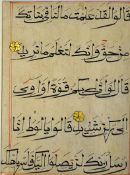 قالوا لقد علمت ما لنا في بناتك
من حق وإنك لتعلم ما نريد
قال لو أن لي بكم قوة أو آوي
إلى ركن شديد قالوا يا لوط إنا
رسل ربك لن يصلوا إليك فأسر بأهلك